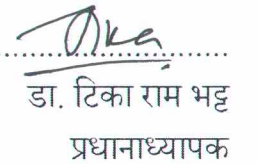 डा. टिका राम भट्ट
प्रधानाध्यापक